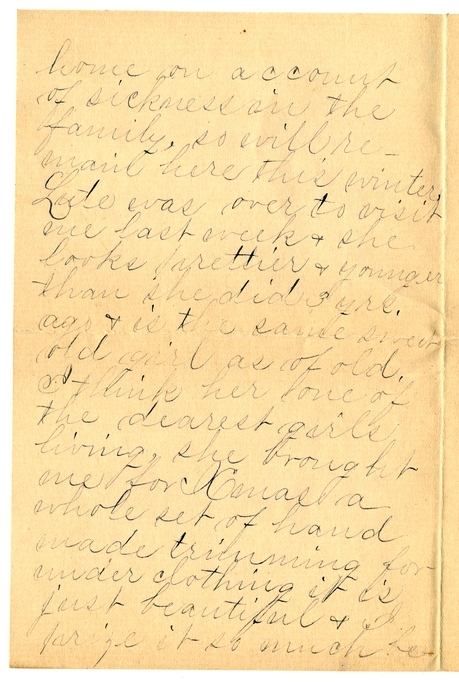 home on account
of sickness in the
family, so will re-
main here this winter
Lute was over to visit
me last week & she
looks prettier & younger
than she did 3 yrs.
ago & is the same sweet
old girl as of old.
I think her one of
the dearest girls
living, she brought
me for Xmas a
whole set of hand
made trimming for
under clothing it is
just beautiful & I
prize it so much be-